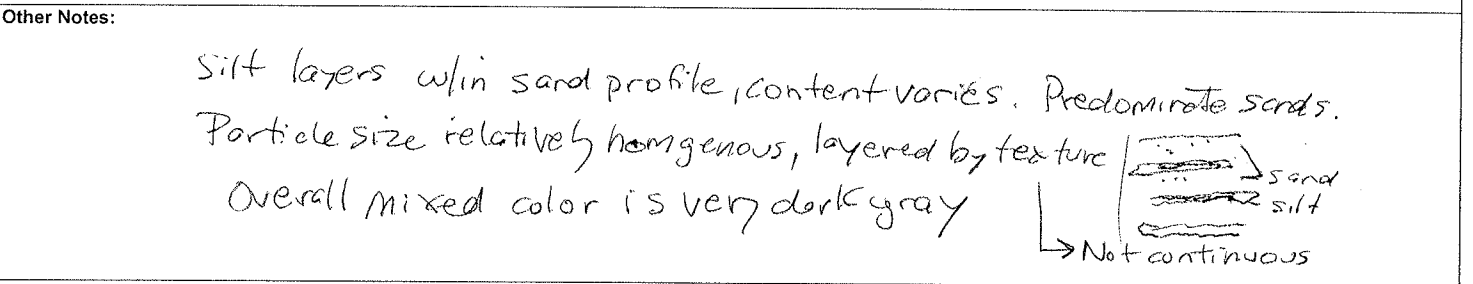 Other Notes:
Silt layers w/in sand profile, content varies. Predominate sands.
Particle size relatively homgenous, layered by texture
sand
Overall mixed color is very dark gray
silt
Not continuous